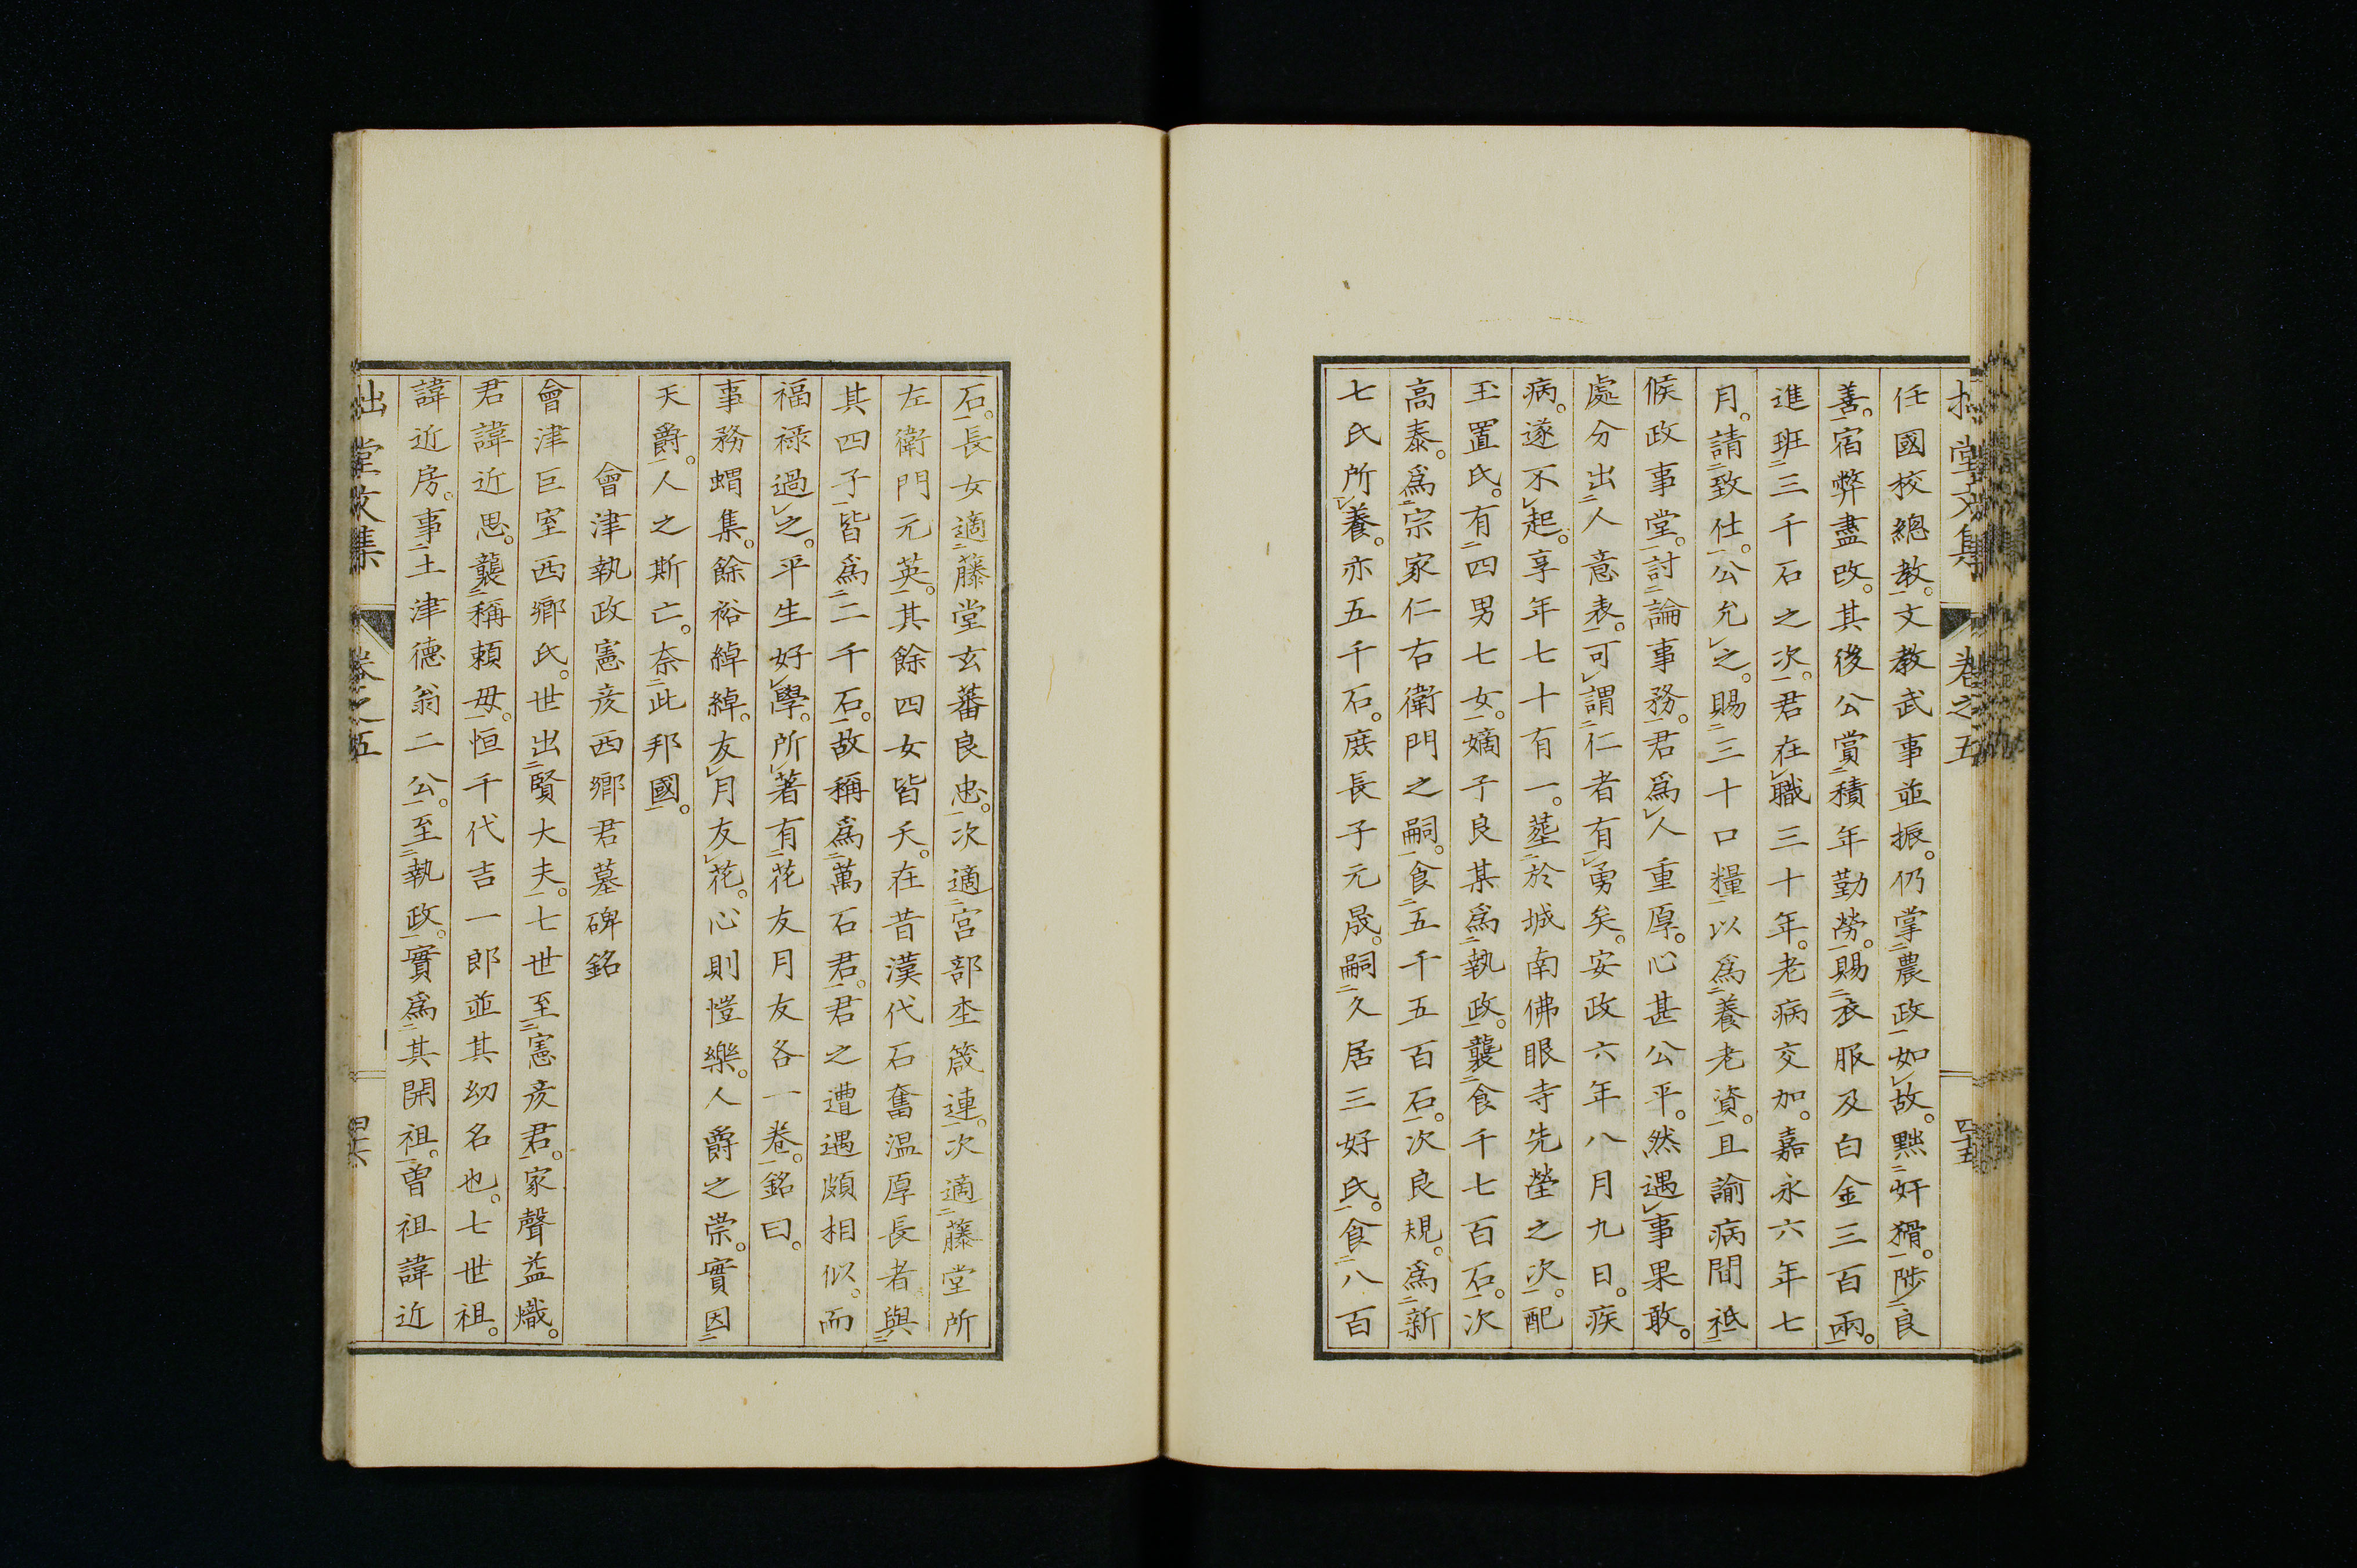 拙堂文集 卷之五 四十五
任國校總教。文教武事並振。仍掌農政如故。黜奸猾。陟良
善。宿弊盡改。其後公賞積年勤勞。賜衣服及白金三百兩。
進班三千石之次。君在職三十年。老病交加。嘉永六年七
月。請致仕。公允之。賜三十口糧以爲養老資。且諭病間祗
候政事堂。討論事務。君爲人重厚。心甚公平。然遇事果敢。
處分出人意表。可謂仁者有勇矣。安政六年八月九日。疾
病。遂不起。享年七十有一。塟於城南佛眼寺先塋之次。配
玉置氏。有四男七女。嫡子良某爲執政。襲食千七百石。次
高泰。爲宗家仁右衛門之嗣。食五千五百石。次良規。爲新
七氏所養。亦五千石。庶長子元晟。嗣久居三好氏。食八百
石。長女適藤堂玄蕃良忠。次適宮部𡉻箴連。次適藤堂所
左衛門元英。其餘四女皆夭。在昔漢代石奮温厚長者與
其四子皆爲二千石。故稱爲萬石君。君之遭遇頗相似。而
福祿過之。平生好學。所著有花友月友各一卷。銘曰。
事務蝟集。餘裕綽綽。友月友花。心則愷樂。人爵之崇。實因
天爵。人之斯亡。奈此邦國。
會津執政憲彦西鄉君墓碑銘
會津巨室西鄉氏。世出賢大夫。七世至憲彦君。家聲益熾。
君諱近思。襲稱賴母。恒千代吉一郎並其幼名也。七世祖。
諱近房。事土津德翁二公。至執政。實爲其開祖。曾祖諱近
拙堂文集 卷之五 四十六